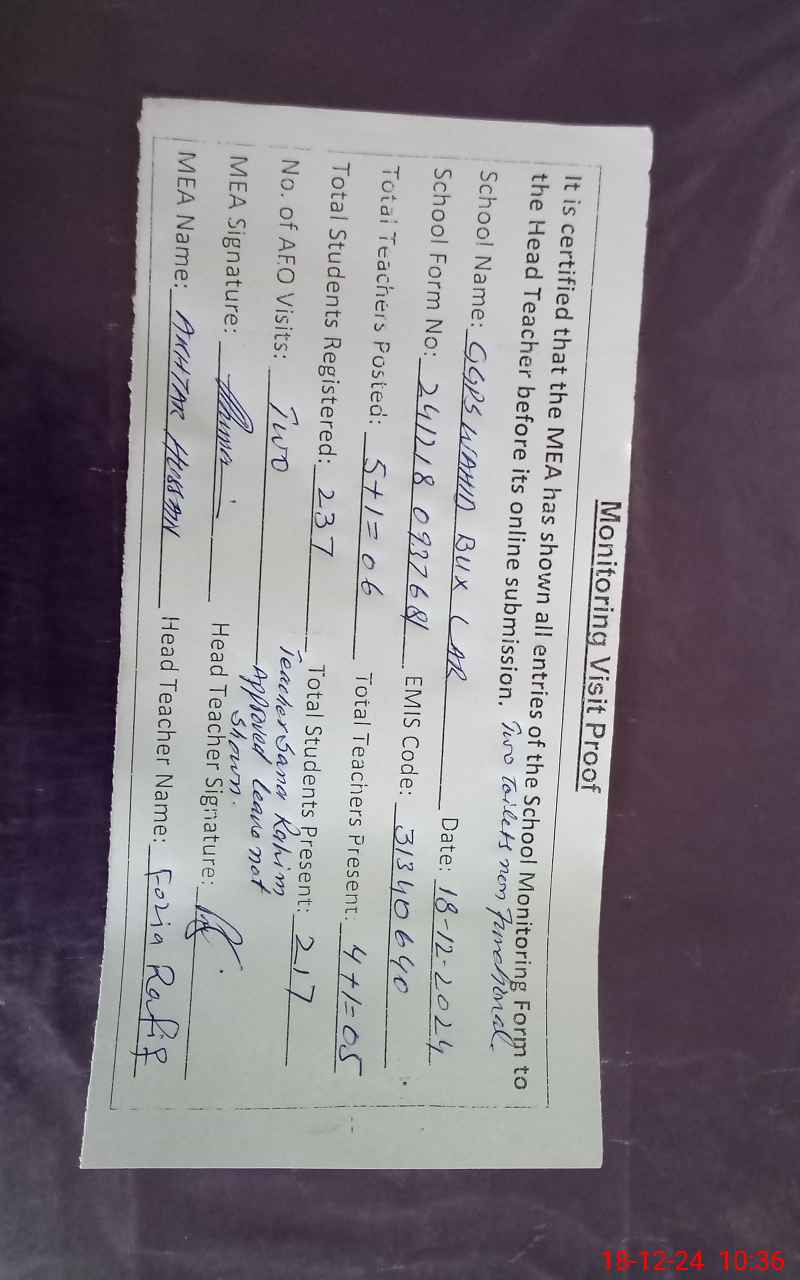 Monitoring Visit Proof
It is certified that the MEA has shown all entries of the School Monitoring Form to
the Head Teacher before its online submission. Two Toilets non functional.
School Name: GGPS WAHID BUX LAR Date: 18-12-2024
School Form No: 241218 0937681 EMIS Code: 31340640
Total Teachers Posted: 5+1=06 Total Teachers Present: 4+1=05
Total Students Registered: 237 Total Students Present: 217
No. of AEO Visits: Two Teacher Sana Rahim
Approved leave not
shown.
MEA Signature: Head Teacher Signature:
MEA Name: AKHTAR HUSSAIN Head Teacher Name: Fozia Rafiq
18-12-24 10:36